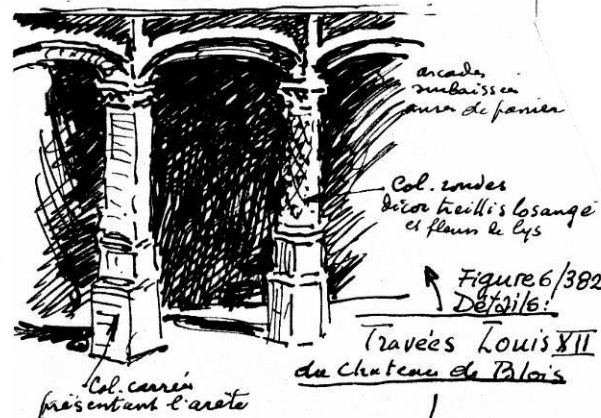 arcades
surbaissées
anses de panier
Col. rondes
décor treillis losangé
et fleurs de lys
Figure 6/382
Détails:
Travées Louis XII
du Chateau de Blois
Col. carrées
présentant l'arête